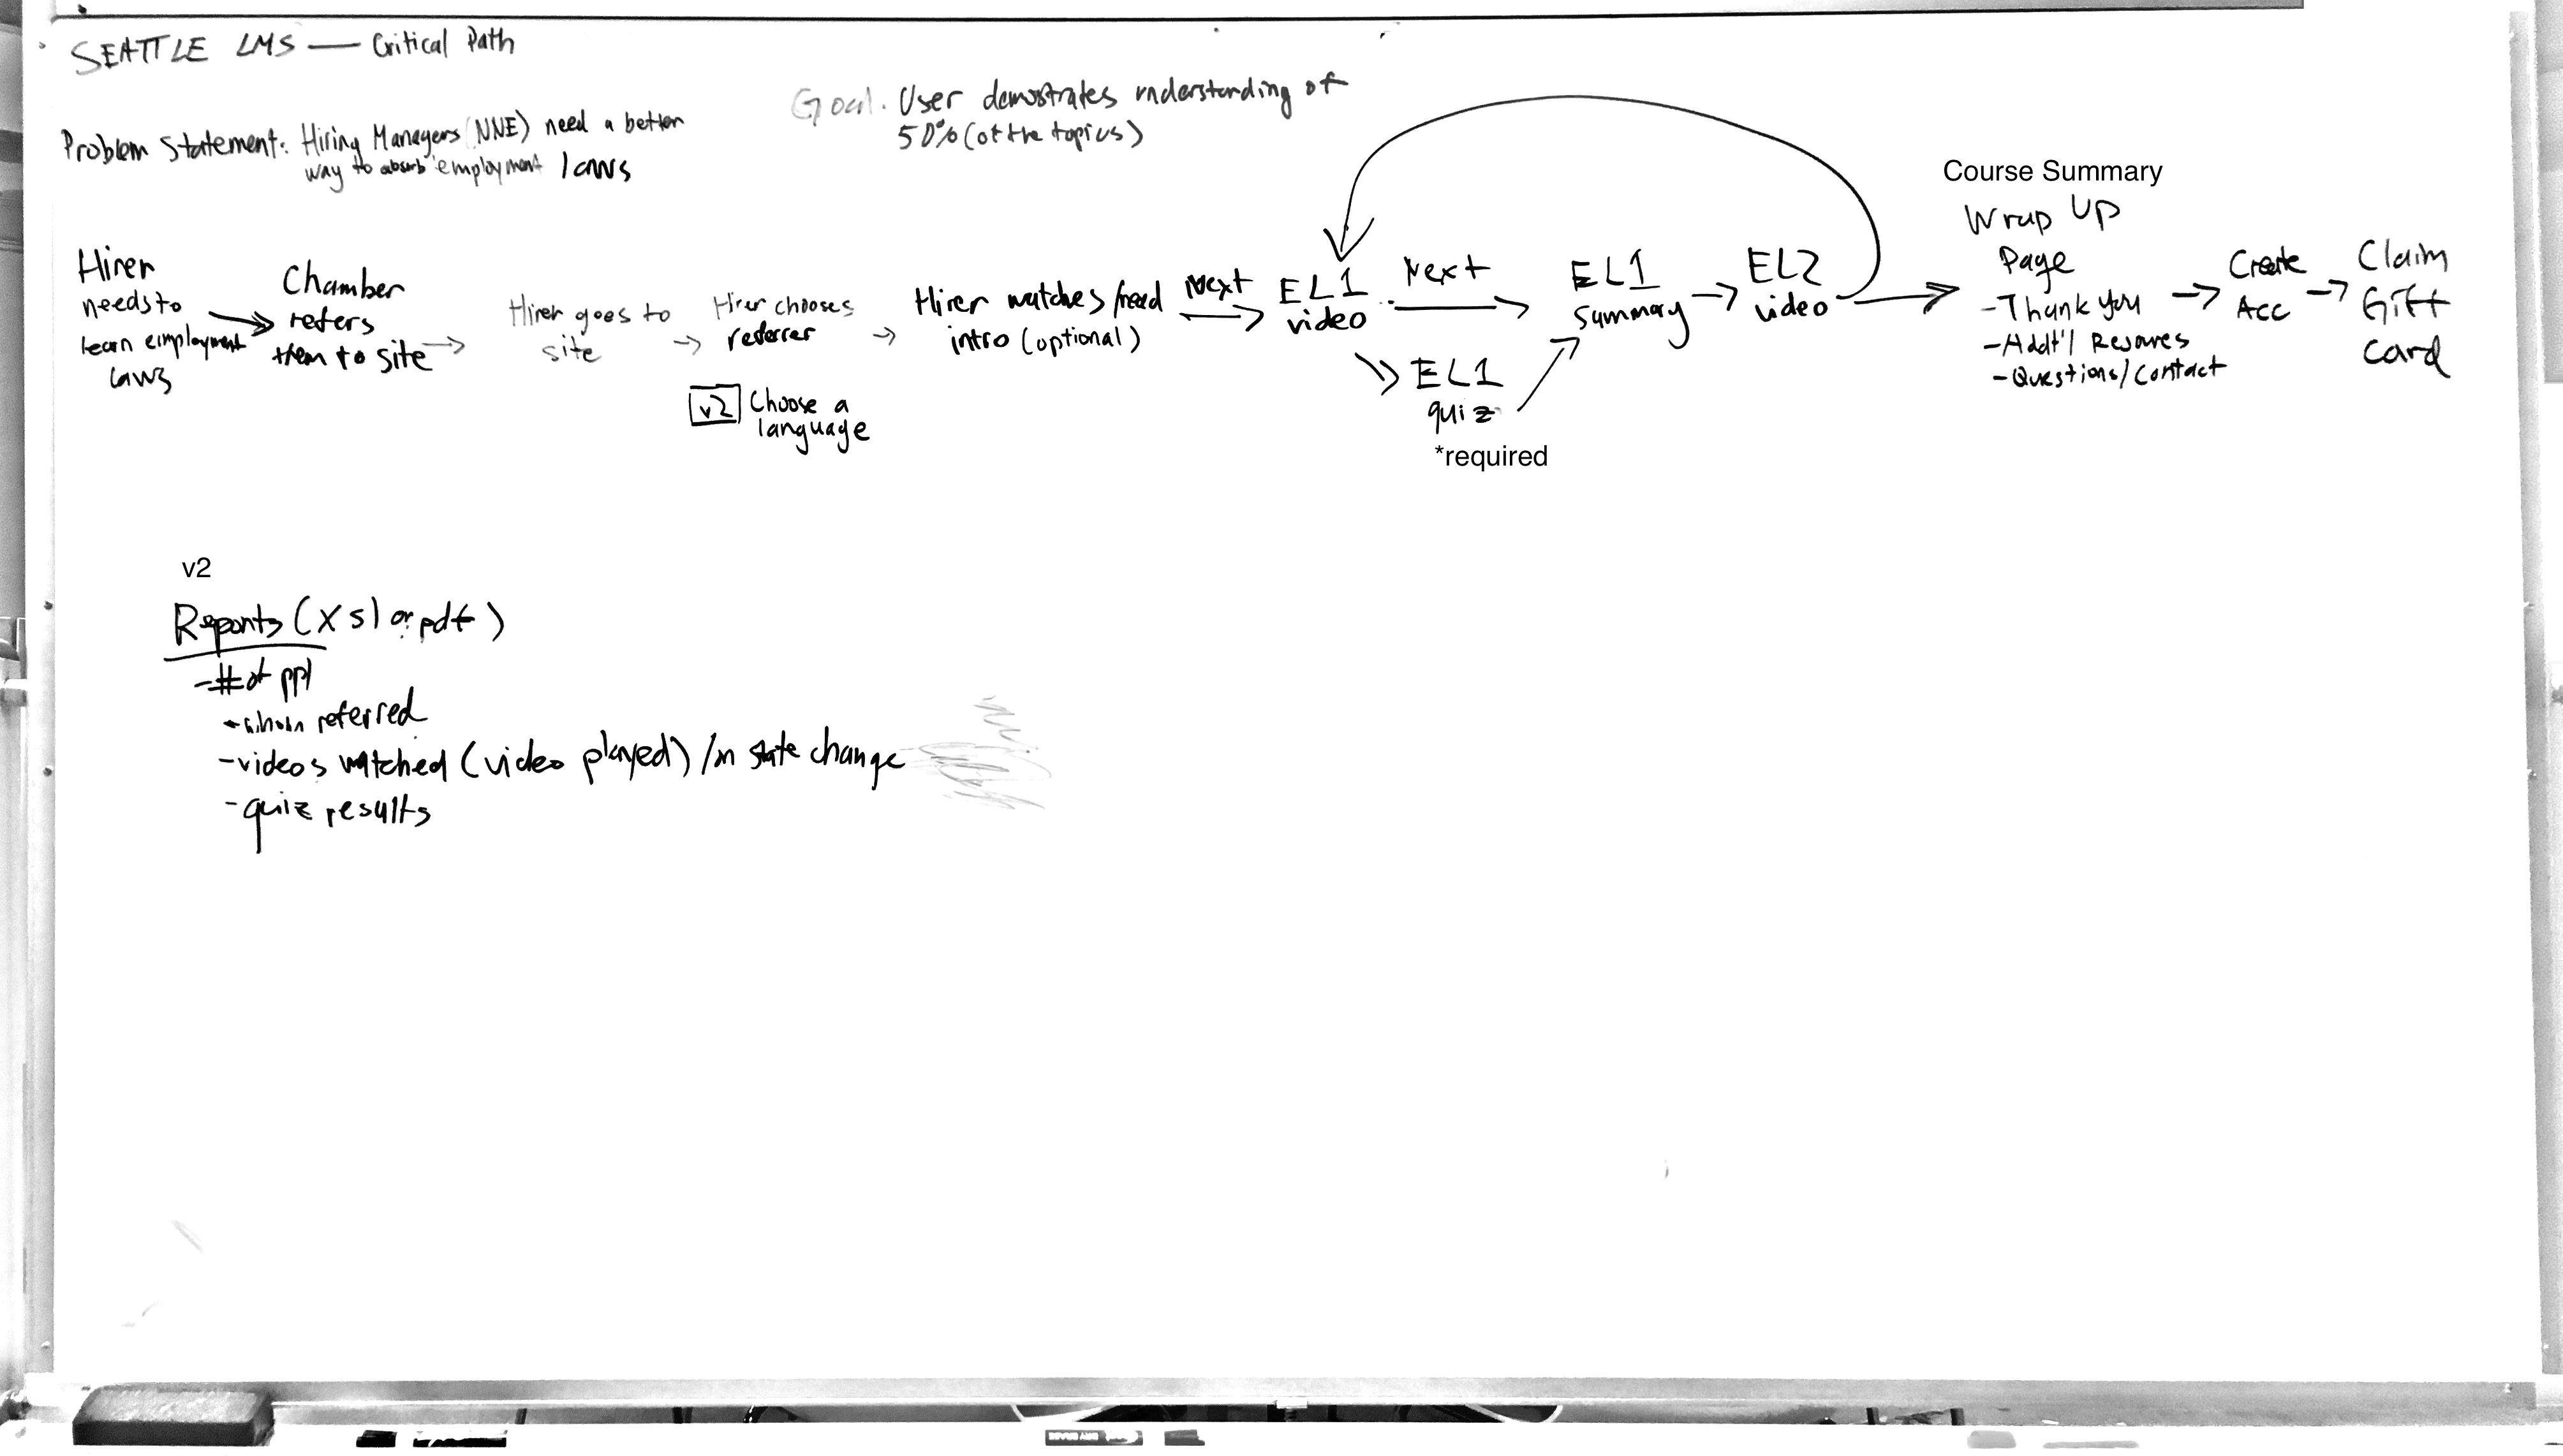 SEATTLE LMS — Critical Path
Problem Statement: Hiring Managers (NNE) need a better
way to absorb employment laws
Goal. User demostrates understanding of
50% (of the topics)
Hirer
needs to
learn employment
laws
Chamber
refers
them to site
Hirer goes to
site
Hirer chooses
referrer
v2 Choose a
language
Hirer watches/read
intro (optional)
Next
EL1
video
Next
EL1
quiz
*required
EL1
summary
EL2
video
Course Summary
Wrap Up
Page
-Thank you
-Addt'l Resources
-Questions/Contact
Create
Acc
Claim
Gift
card
v2
Reports (xsl or pdf)
-# of ppl
-whom referred
-videos watched (video played) / state change
-quiz results